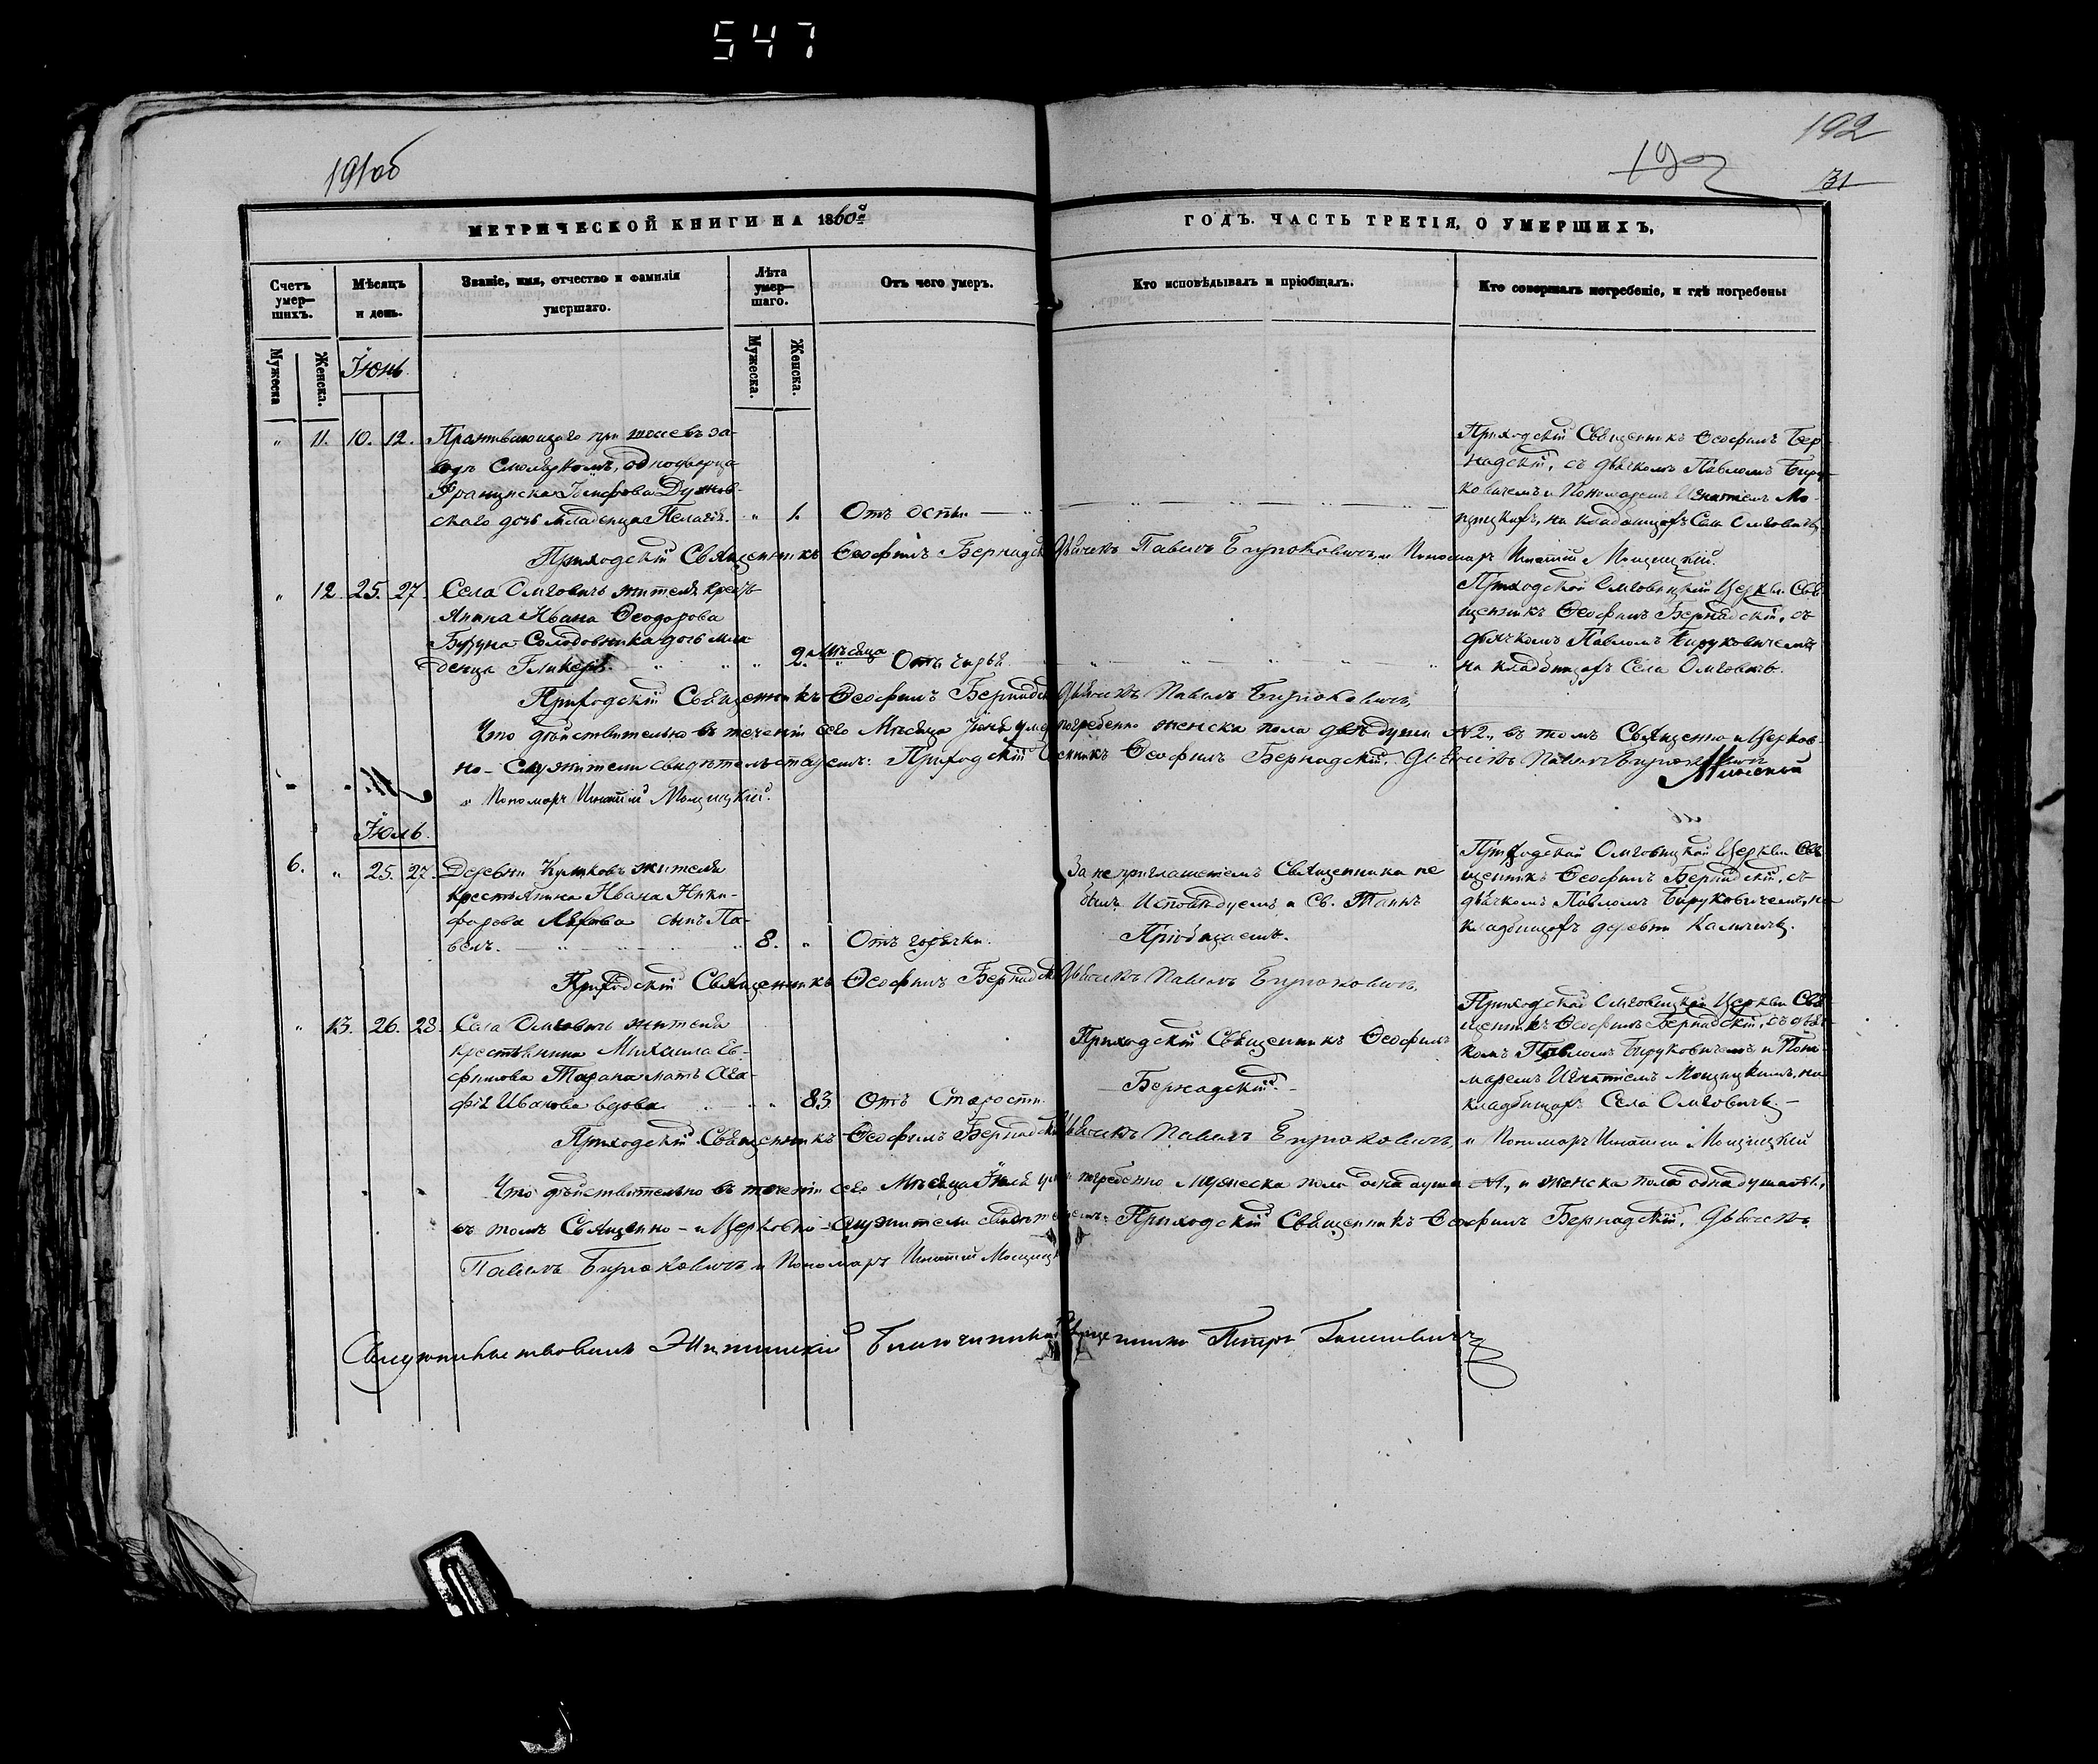 547
191об
192
192
31
МЕТРИЧЕСКОЙ КНИГИ НА 1860й
ГОДЪ. ЧАСТЬ ТРЕТІЯ, О УМЕРШИХЪ,
Счетъ умер-шихъ.
Мѣсяцъ и день.
Званіе, имя, отчество и фамилія умершаго.
Лѣта умер-шаго.
Отъ чего умеръ.
Кто исповѣдывалъ и пріобщалъ.
Кто совершалъ погребеніе, и гдѣ погребены
Мужеска
Женска.
Мужеска.
Женска.
Іюнь
" 11. 10. 12.
Проживающаго при
водѣ Смолярномъ, однодворца
Франциска
скаго дочь младенца Пелагія. " 1. Отъ оспы
Приходскій Священникъ Ѳеофилъ Бер-
надскій, съ дьячкомъ Павломъ Биру-
ковичемъ и Пономаремъ Игнатіемъ Мо-
щицкимъ, на кладбищѣ Села Омговичъ
Приходскій Священникъ Ѳеофилъ Бернадскій Дьячекъ Павелъ Бирюковичъ и Пономарь Игнатій Мощицкій.
" 12. 25. 27.
Села Омговичъ жителя кресть-
янина Ивана Ѳеодорова
Солодовника дочь мла-
денца Гликерія " 2. мѣсяца Отъ
Приходской Омговицкой Церкви Свя-
щенникъ Ѳеофилъ Бернадскій, съ
дьячкомъ Павломъ Бируковичемъ
на кладбищѣ Села Омговичъ.
Приходскій Священникъ Ѳеофилъ Бернадскій Дьячекъ Павелъ Бирюковичъ,
Что дѣйствительно въ теченіи сего Мѣсяца Іюня погребенно женска пола двѣ души №2., въ томъ Священно и Церков-
но-Служители свидѣтельствуемъ: Приходскій Ѳеофилъ Бернадскій, Дьячекъ Павелъ Бирюковичъ
и Пономарь Игнатій Мощицкій.
Іюль
6. " 25. 27.
Деревни жителя
крестьянина Ивана Ники-
форова сынъ Па-
велъ. 8. " Отъ горячки.
За не приглашеніемъ Священника не
былъ Исповѣдуемъ и Св. Таинъ
Пріобщаемъ.
Приходской Омговицкой Церкви Свя-
щенникъ Ѳеофилъ Бернадскій, съ
дьячкомъ Павломъ Бируковичемъ, на
кладбищѣ деревни
Приходскій Священникъ Ѳеофилъ Бернадскій Дьячекъ Павелъ Бирюковичъ,
" 13. 26. 28.
Села Омговичъ жителя
крестьянина Михаила Ев-
фимова Тарана мать Ага-
фія Иванова вдова " 83 Отъ Старости.
Приходскій Священникъ Ѳеофилъ
Бернадскій.
Приходской Омговицкой Церкви Свя-
щенникъ Ѳеофилъ Бернадскій, съ дьяч-
комъ Павломъ Бируковичемъ и Поно-
маремъ Игнатіемъ Мощицкимъ, на
кладбищѣ Села Омговичъ.
Приходскій Священникъ Ѳеофилъ Бернадскій Дьячекъ Павелъ Бирюковичъ, и Пономарь Игнатій Мощицкій
Что дѣйствительно въ теченіи сего Мѣсяца Іюля погребенно мужеска пола одна душа №1., и женска пола одна душа №1.,
въ томъ Священно-и Церковно-служители Приходскій Священникъ Ѳеофилъ Бернадскій. Дьячекъ
Павелъ Бирюковичъ и Пономарь Игнатій
Благочинный Священникъ Петръ